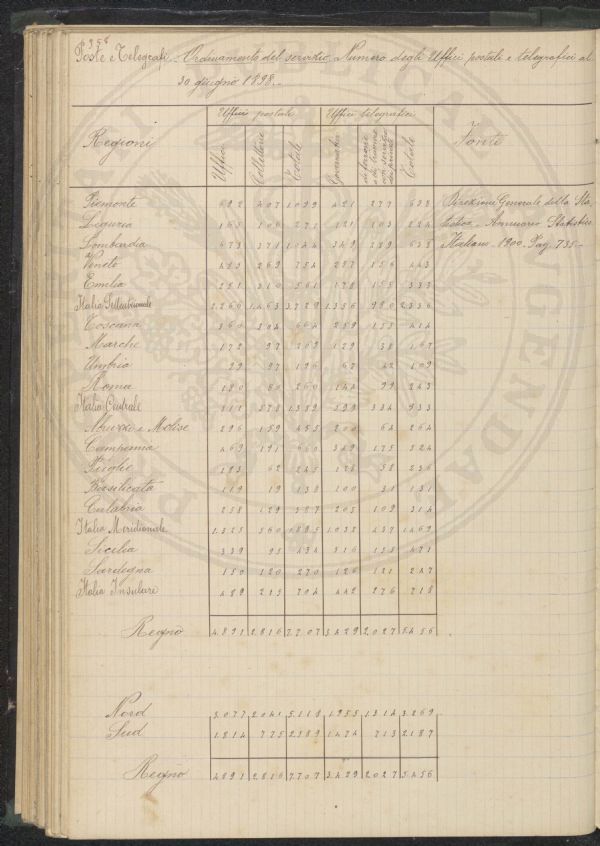 Poste e Telegrafi. Ordinamento del servizio. Numero degli Uffici postali e telegrafici al
30 giugno 1898.
Uffici postali Uffici telegrafici
Regioni Uffici Collettorie Totale Governativi Totale Fonti
Piemonte 692 407 1099 421 277 698 Direzione Generale della Sta-
Liguria 165 106 271 121 103 224 tistica. Annuario Statistico
Lombardia 673 371 1044 349 289 638 Italiano. 1900. Pag. 735.
Veneto 485 269 754 287 156 443
Emilia 251 310 561 178 155 333
Italia Settentrionale 2266 1463 3729 1356 980 2336
Toscana 360 304 664 259 155 414
Marche 172 97 269 129 38 167
Umbria 99 97 196 67 42 109
Roma 180 80 260 144 99 243
Italia Centrale 811 578 1389 599 334 933
Abruzzi e Molise 296 159 455 200 64 264
Campania 469 191 660 349 175 524
Puglie 183 62 245 178 58 236
Basilicata 119 19 138 100 31 131
Calabria 258 129 387 205 109 314
Italia Meridionale 1325 560 1885 1032 437 1469
Sicilia 339 95 434 316 155 471
Sardegna 150 120 270 126 121 247
Italia Insulare 489 215 704 442 276 718
Regno 4891 2816 7707 3429 2027 5456
Nord 3077 2041 5118 1955 1314 3269
Sud 1814 775 2589 1474 713 2187
Regno 4891 2816 7707 3429 2027 5456